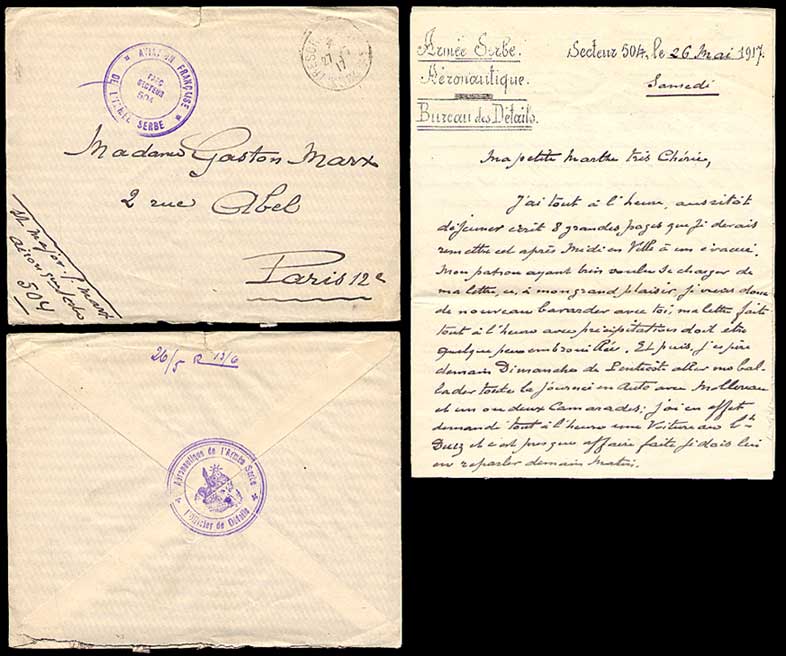 AVIATION FRANÇAISE
DE L'ARMÉE SERBE
PARC
SECTEUR
504
TRESOR
27
17
Madame Gaston Marx
2 rue Abel
Paris 12e
504
26/5 R 13/6
Aéronautique de l'Armée Serbe
L'Officier de Détails
Armée Serbe.
Aéronautique.
Bureau des Détails.
Secteur 504, le 26 Mai 1917.
Samedi
Ma petite Marthe très Chérie,
J'ai tout à l'heure, aussitôt
déjeuner écrit 8 grandes pages que je devais
remettre cet après Midi en Ville à un évacué.
Mon patron ayant bien voulu se charger de
ma lettre, et, à mon grand plaisir, je viens donc
de nouveau bavarder avec toi, ma lettre faite
tout à l'heure avec précipitations doit être
quelque peu embrouillée. Et puis, j'espère
demain Dimanche de Pentecôt aller me bal-
lader toute la journée en Auto avec Mollereau
et un ou deux Camarades; j'ai en effet
demandé tout à l'heure une Voiture au Ltt
et c'est presque affaire faite je dois lui
en reparler demain Matin.